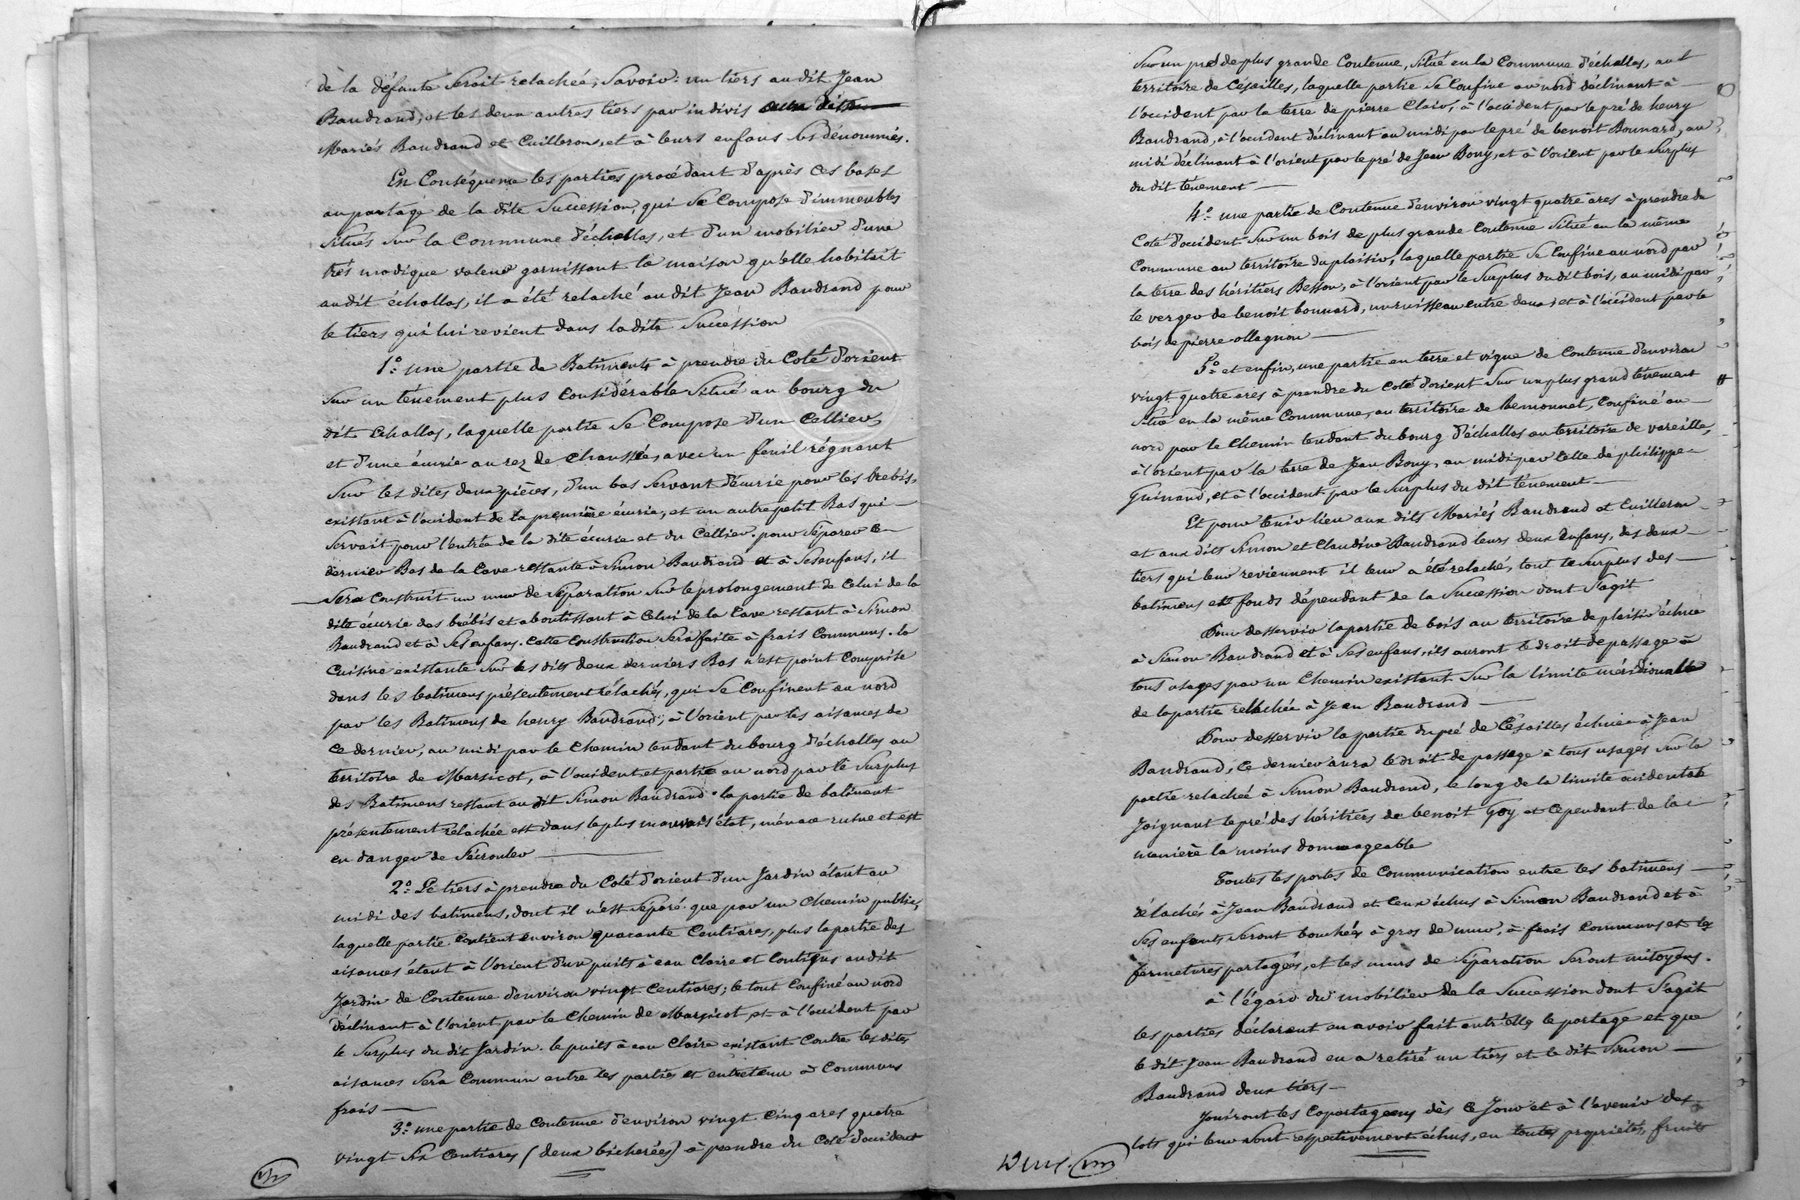 de la défunte serait relachée, Savoir: un tiers au dit Jean
Baudrand, et les deux autres tiers par indivis aux dits
Mariés Baudrand et Cuilleron, et à leurs enfans sus dénommés.
En Conséquence les parties procédant d'après ces bases
au partage de la dite Succession, qui Se Compose d'immeubles
Situés Sur la Commune d'échallas, et d'un mobilier d'une
très modique valeur garnissant la maison qu'elle habitait
au dit échallas, il a été relaché au dit Jean Baudrand pour
le tiers qui lui revient dans la dite Succéssion
1.° une partie de Batiments à prendre du Coté d'orient
Sur un tènement plus Considérable Situé au bourg du
dit échallas, laquelle partie Se Compose d'un Cellier,
et d'une écurie au rez de chaussée, avec un fenil régnant
Sur les dites deux pièces, d'un bas Servant d'écurie pour les brebis,
existant à l'occident de la première écurie, et un autre petit Bas qui
Servait pour l'entrée de la dite écurie et du Cellier. pour Séparer ce
dernier Bas de la Cave restante à Simon Baudrand et à Ses enfans, il
Sera Construit un mur de Séparation Sur le prolongement de Celui de la
dite écurie des brebis et aboutissant à Celui de la Cave restant à Simon
Baudrand et à Ses enfans. Cette Construction Sera faite à frais Communs. la
Cuisine existante Sur les dits deux derniers Bas n'est point Comprise
dans les batimens présentement rélachés, qui Se Confinent au nord
par les Batimens de henry Baudrand; à l'orient par les aisances de
ce dernier, au midi par le Chemin tendant du bourg d'échallas au
territoire de Marsicot, à l'occident et partie au nord par le Surplus
des Batimens restant au dit Simon Baudrand. la partie de batiment
présentement rélachée est dans le plus mauvais état, ménace ruine et est
en danger de S'écrouler
2.° Le tiers à prendre du Coté d'orient d'un Jardin étant au
midi des batimens, dont il n'est Séparé que par un Chemin public,
laquelle partie Contient environ quarante Centiares, plus la partie des
aisances étant à l'orient d'un puits à eau Claire et Contigus au dit
Jardin de Contenue d'environ vingt Centiares; le tout Confiné au nord
déclinant à l'orient par le Chemin de Marsicot, et à l'occident par
le Surplus du dit Jardin. le puits à eau Claire existant Contre les dites
aisances Sera Commun entre les parties et entretenu à Communs
frais
3.° une partie de Contenue d'environ vingt Cinq ares quatre
vingt Six Centiares (deux bicherées) à prendre du Coté d'occident
Sur un pré de plus grande Contenue, Situé en la Commune d'échallas, au
territoire de Césailles, laquelle partie Se Confine au nord déclinant à
l'occident par la terre de pierre Clair, à l'occident par le pré de henry
Baudrand, à l'occident déclinant au midi par le pré de benoit Bonnard, au
midi déclinant à l'orient par le pré de Jean Bony, et à l'orient par le Surplus
du dit tènement
4.° une partie de Contenue d'environ vingt quatre ares à prendre du
Coté d'occident Sur un bois de plus grande Contenue Situé en la même
Commune au territoire du plaisir, laquelle partie Se Confine au nord par
la terre des héritiers Besson, à l'orient par le Surplus du dit bois, au midi par
le verger de benoit bonnard, un ruisseau entre deux; et à l'occident par le
bois de pierre ollagnon
5.° et enfin, une partie en terre et vigne de Contenue d'environ
vingt quatre ares à prendre du Coté d'orient Sur un plus grand tènement
Situé en la même Commune, au territoire de Remonnet, Confiné au
nord par le Chemin tendant du bourg d'échallas au territoire de vareille,
à l'orient par la terre de Jean Bony, au midi par Celle de philippe
Guinand, et à l'occident par le Surplus du dit tènement
Et pour tenir lieu aux dits Mariés Baudrand et Cuilleron
et aux dits Simon et Claudine Baudrand leurs deux enfans, des deux
tiers qui leur reviennent il leur a été relaché, tout le Surplus des
batimens et fonds dépendant de la Succession dont S'agit
Pour desservir la partie de bois au territoire de plaisir échue
à Simon Baudrand et à Ses enfans, ils auront le droit de passage à
tous usages par un Chemin existant Sur la limite méridionale
de la partie relachée à Jean Baudrand
Pour desservir la partie du pré de Césailles échue à Jean
Baudrand, ce dernier aura le droit de passage à tous usages Sur la
partie relachée à Simon Baudrand, le long de la limite occidentale
Joignant le pré des héritiers de benoit Goy et Cependant de la
manière la moins dommageable
Toutes les portes de Communication entre les batimens
rélachés à Jean Baudrand et Ceux échus à Simon Baudrand et à
Ses enfants, Seront bouchées à gros de mur, à frais Communs et les
fermetures partagées, et les murs de Séparation Seront mitoyens.
à l'égard du mobilier de la Succession dont S'agit
les parties déclarent en avoir fait entr'elles le partage et que
le dit Jean Baudrand en a retiré un tiers et le dit Simon
Baudrand deux tiers
Jouiront les Copartageans dès ce Jour et à l'avenir des
lots qui leur sont respectivement échus, en toutes propriétés, fruits